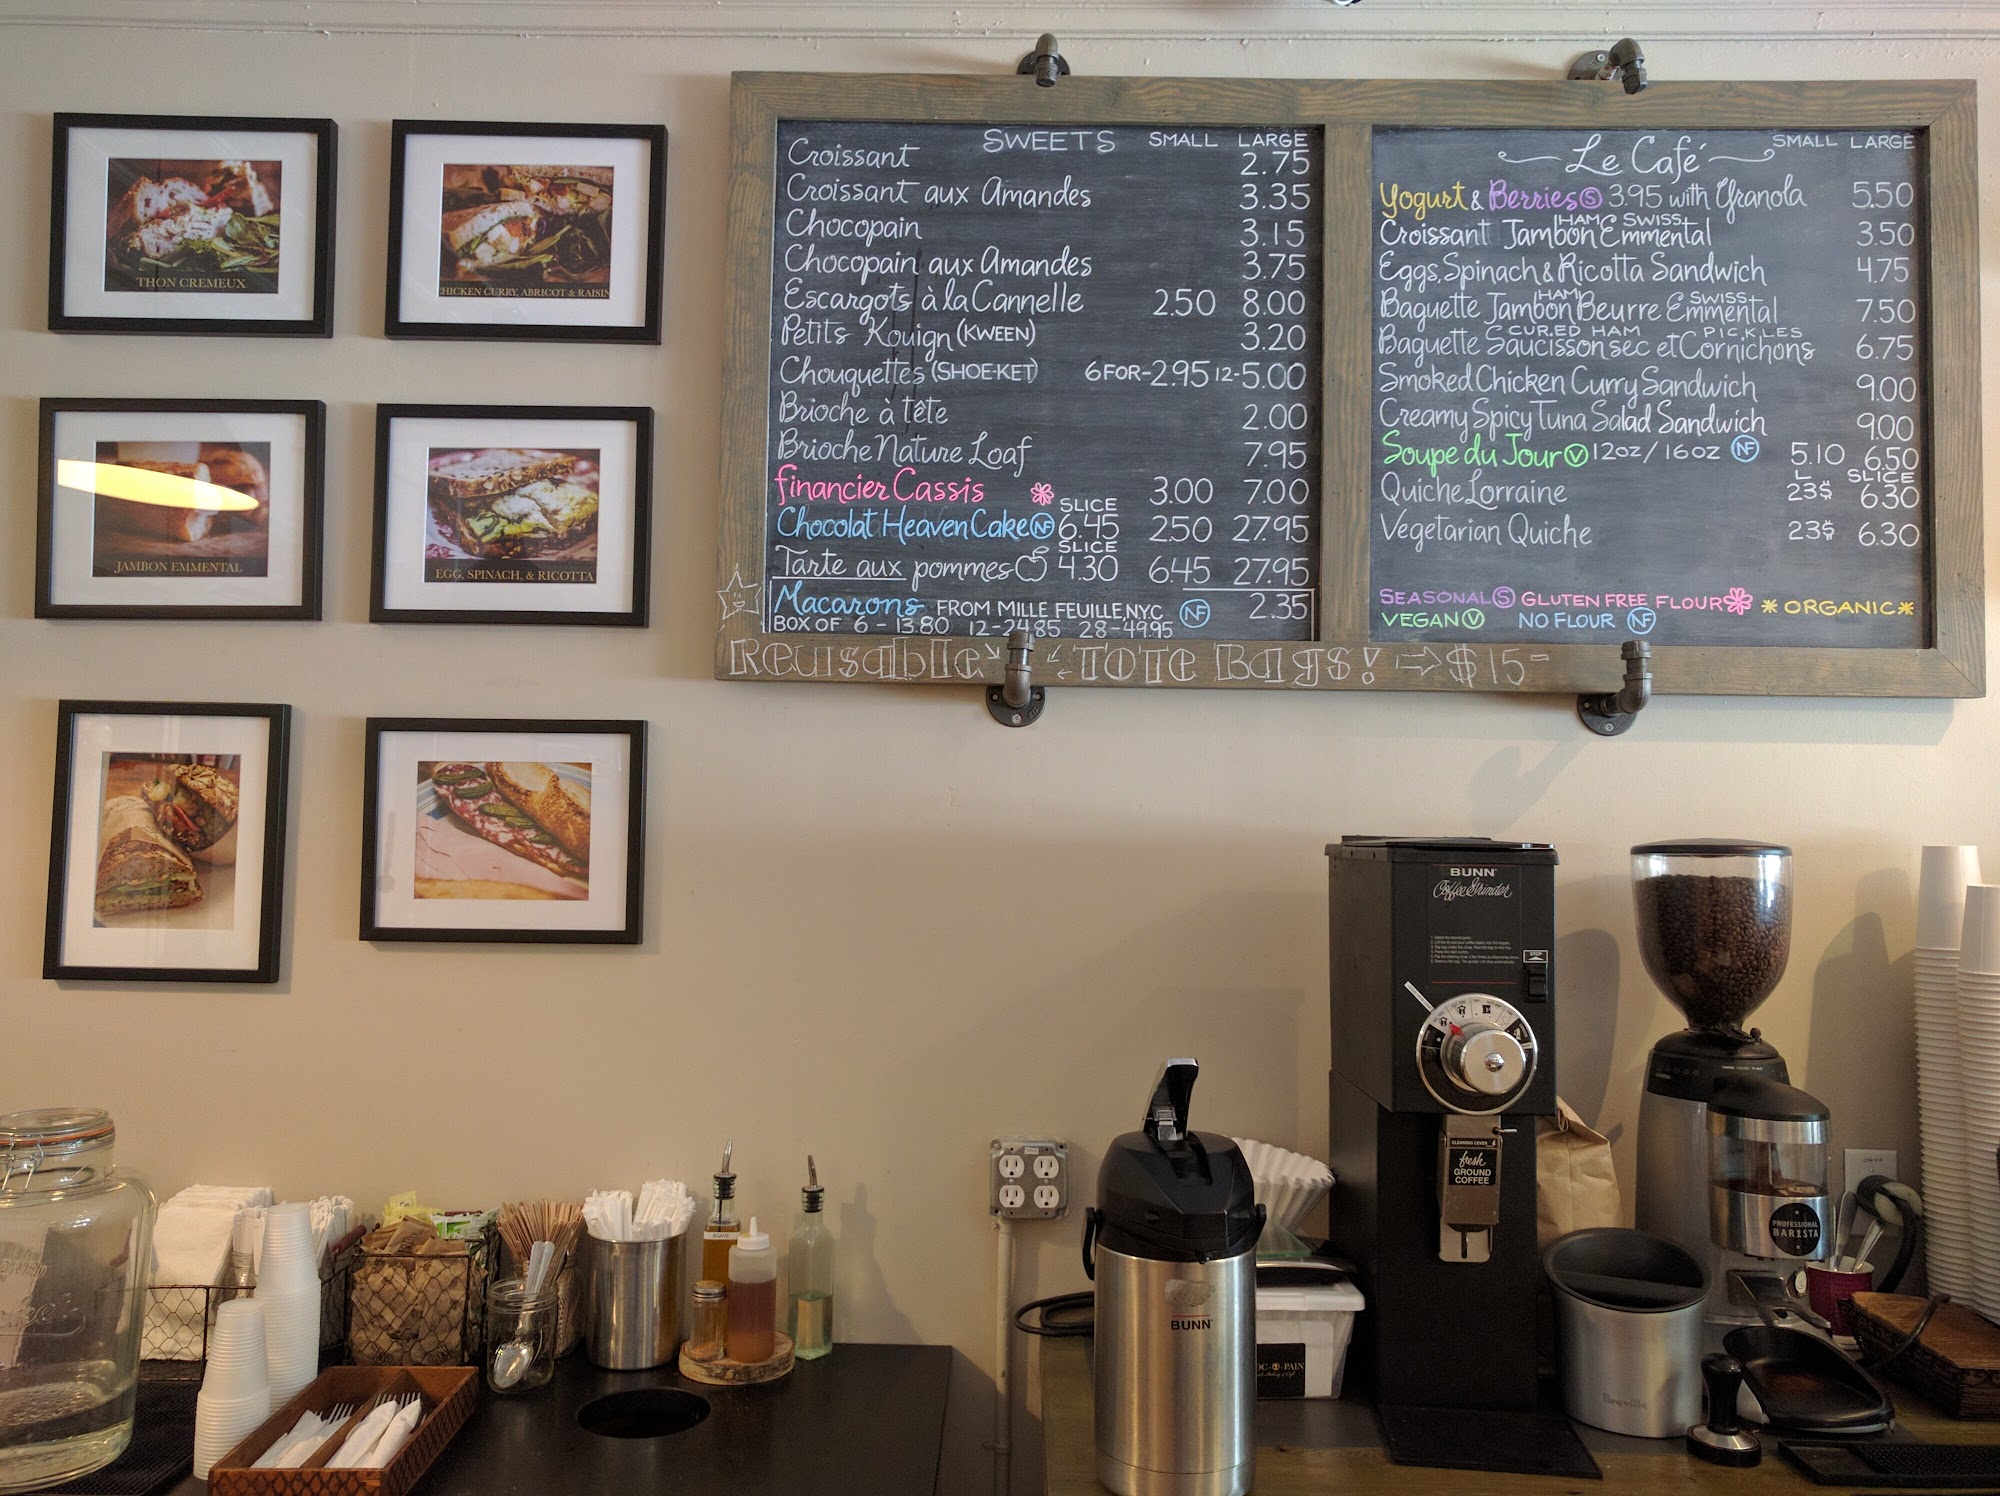 THON CREMEUX
CHICKEN CURRY, ABRICOT & RAISIN
JAMBON EMMENTAL
EGG, SPINACH, & RICOTTA
SWEETS SMALL LARGE
Croissant 2.75
Croissant aux Amandes 3.35
Chocopain 3.15
Chocopain aux Amandes 3.75
Escargots à la Cannelle 2.50 8.00
Petits Kouign (KWEEN) 3.20
Chouquettes (SHOE-KET) 6 FOR-2.95 12-5.00
Brioche à tête 2.00
Brioche Nature Loaf 7.95
financier Cassis 3.00 7.00
SLICE
Chocolat Heaven Cake NF 6.45 2.50 27.95
SLICE
Tarte aux pommes 4.30 6.45 27.95
Macarons FROM MILLE FEUILLE, NYC NF 2.35
BOX OF 6 - 13.80 12-24.85 28-49.95
Le Café SMALL LARGE
Yogurt & Berries S 3.95 with Granola 5.50
HAM & SWISS
Croissant Jambon Emmental 3.50
Eggs, Spinach & Ricotta Sandwich 4.75
HAM SWISS
Baguette Jambon Beurre Emmental 7.50
CURED HAM PICKLES
Baguette Saucisson sec et Cornichons 6.75
Smoked Chicken Curry Sandwich 9.00
Creamy Spicy Tuna Salad Sandwich 9.00
Soupe du Jour V 12oz / 16oz NF 5.10 6.50
L SLICE
Quiche Lorraine 23$ 6.30
Vegetarian Quiche 23$ 6.30
SEASONAL S GLUTEN FREE FLOUR * ORGANIC *
VEGAN V NO FLOUR NF
REUSABLE TOTE BAGS! $15-
BUNN
Coffee Grinder
STOP
CLEANING LEVER
fresh
GROUND
COFFEE
PROFESSIONAL
BARISTA
AGAVE
BUNN
OC-O-PAIN
Breville